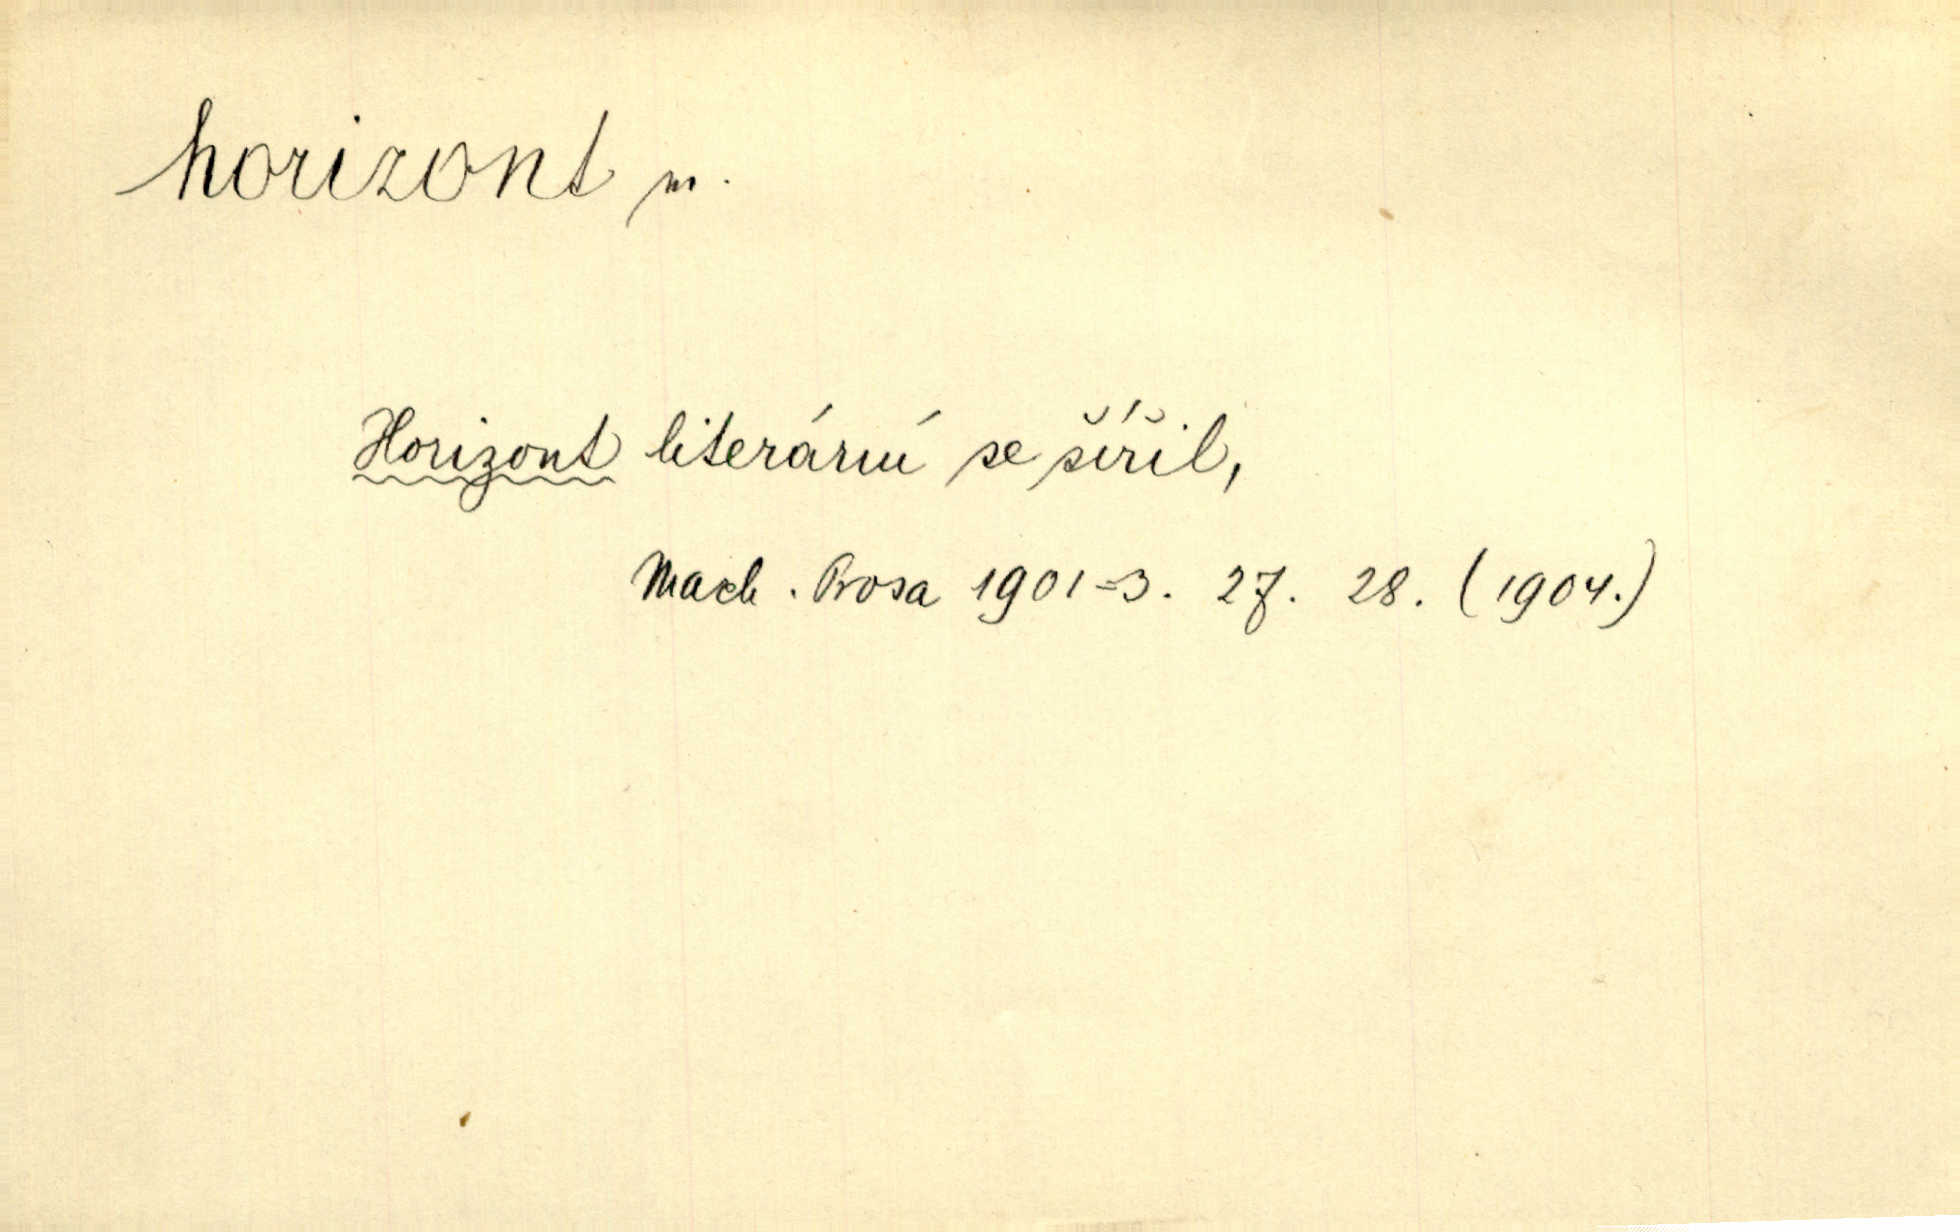 horizont m.
Horizont literární se šířil,
Mach. Prosa 1901-3. 27. 28. (1904.)